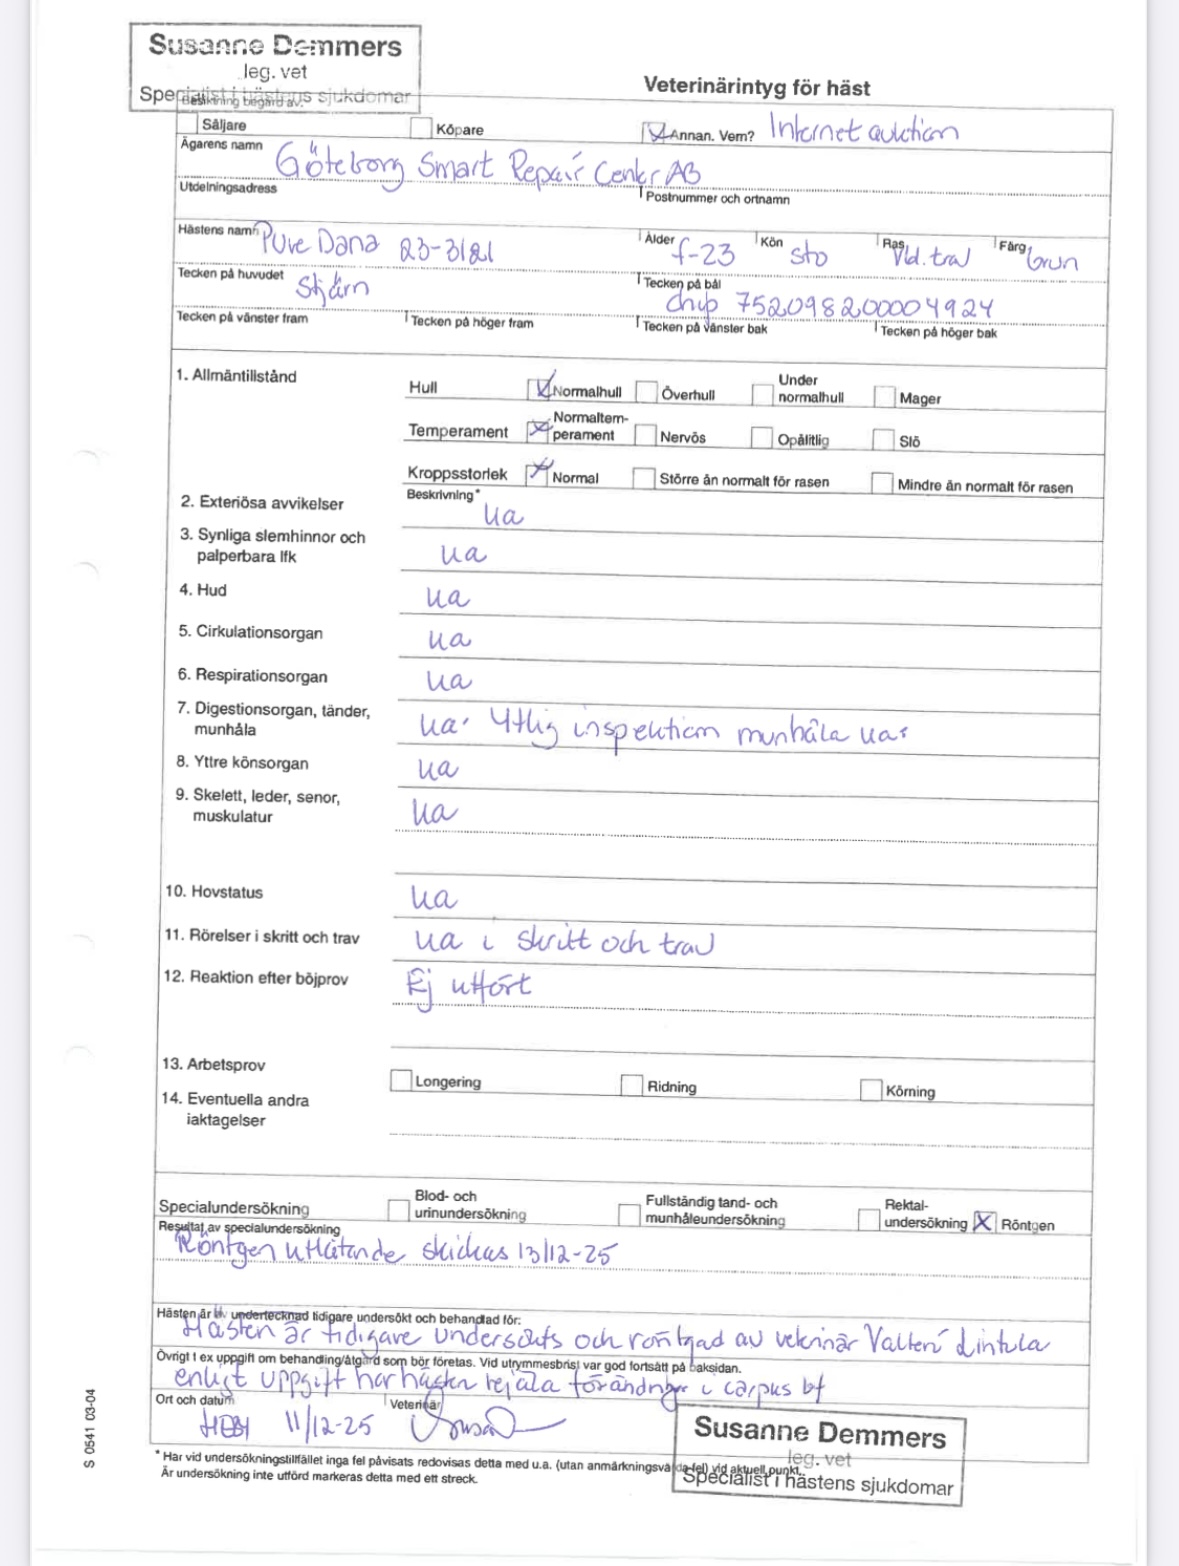 Susanne Demmers
leg. vet
Specialist i hästens sjukdomar
Veterinärintyg för häst
Besiktning begärd av:
Säljare Köpare Annan. Vem? Internet auktion
Ägarens namn Göteborg Smart Repair Center AB
Utdelningsadress Postnummer och ortnamn
Hästens namn Pure Dana 23-3121 Ålder f-23 Kön sto Ras Vld. trav Färg brun
Tecken på huvudet Stjärn Tecken på bål chip 752098200004924
Tecken på vänster fram Tecken på höger fram Tecken på vänster bak Tecken på höger bak
1. Allmäntillstånd Hull Normalhull Överhull Under normalhull Mager
Temperament Normaltem-perament Nervös Opålitlig Slö
Kroppsstorlek Normal Större än normalt för rasen Mindre än normalt för rasen
Beskrivning*
2. Exteriösa avvikelser ua
3. Synliga slemhinnor och
palperbara lfk ua
4. Hud ua
5. Cirkulationsorgan ua
6. Respirationsorgan ua
7. Digestionsorgan, tänder,
munhåla ua. Ytlig inspektion munhåla ua.
8. Yttre könsorgan ua
9. Skelett, leder, senor,
muskulatur ua
10. Hovstatus ua
11. Rörelser i skritt och trav ua i skritt och trav
12. Reaktion efter böjprov Ej utfört
13. Arbetsprov Longering Ridning Körning
14. Eventuella andra
iaktagelser
Specialundersökning Blod- och urinundersökning Fullständig tand- och munhåleundersökning Rektal-undersökning Röntgen
Resultat av specialundersökning
Röntgen utlåtande skickas 13/12-25
Hästen är av undertecknad tidigare undersökt och behandlad för:
Hästen är tidigare undersökts och röntgad av veterinär Valteri Lintula
Övrigt t ex uppgift om behandling/åtgärd som bör företas. Vid utrymmesbrist var god fortsätt på baksidan.
enligt uppgift har hästen rejäla förändringer i carpus bf
Ort och datum 11/12-25 Veterinär
Susanne Demmers
leg. vet
Specialist i hästens sjukdomar
* Har vid undersökningstillfället inga fel påvisats redovisas detta med u.a. (utan anmärkningsvärda fel) vid aktuell punkt.
Är undersökning inte utförd markeras detta med ett streck.
S 0541 03-04